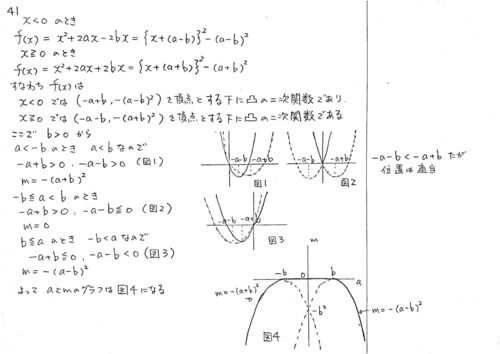 41
x<0 のとき
f(x) = x²+2ax-2bx = {x+(a-b)}²-(a-b)²
x≧0 のとき
f(x) = x²+2ax+2bx = {x+(a+b)}²-(a+b)²
すなわち f(x)は
x<0 では (-a+b, -(a-b)²) を頂点とする下に凸の二次関数であり,
x≧0 では (-a-b, -(a+b)²) を頂点とする下に凸の二次関数である
ここで b>0 から
a<-b のとき a<b なので
-a+b>0, -a-b>0 (図1)
m=-(a+b)²
-b≦a<b のとき
-a+b>0, -a-b≦0 (図2)
m=0
b≦a のとき -b<a なので
-a+b≦0, -a-b<0 (図3)
m=-(a-b)²
よって aとmのグラフは図4になる
-a-b -a+b
図1
-a-b -a+b
図2
-a-b -a+b
図3
-a-b<-a+b だが
位置は適当
m
-b 0 b a
m=-(a+b)²
-b²
m=-(a-b)²
図4